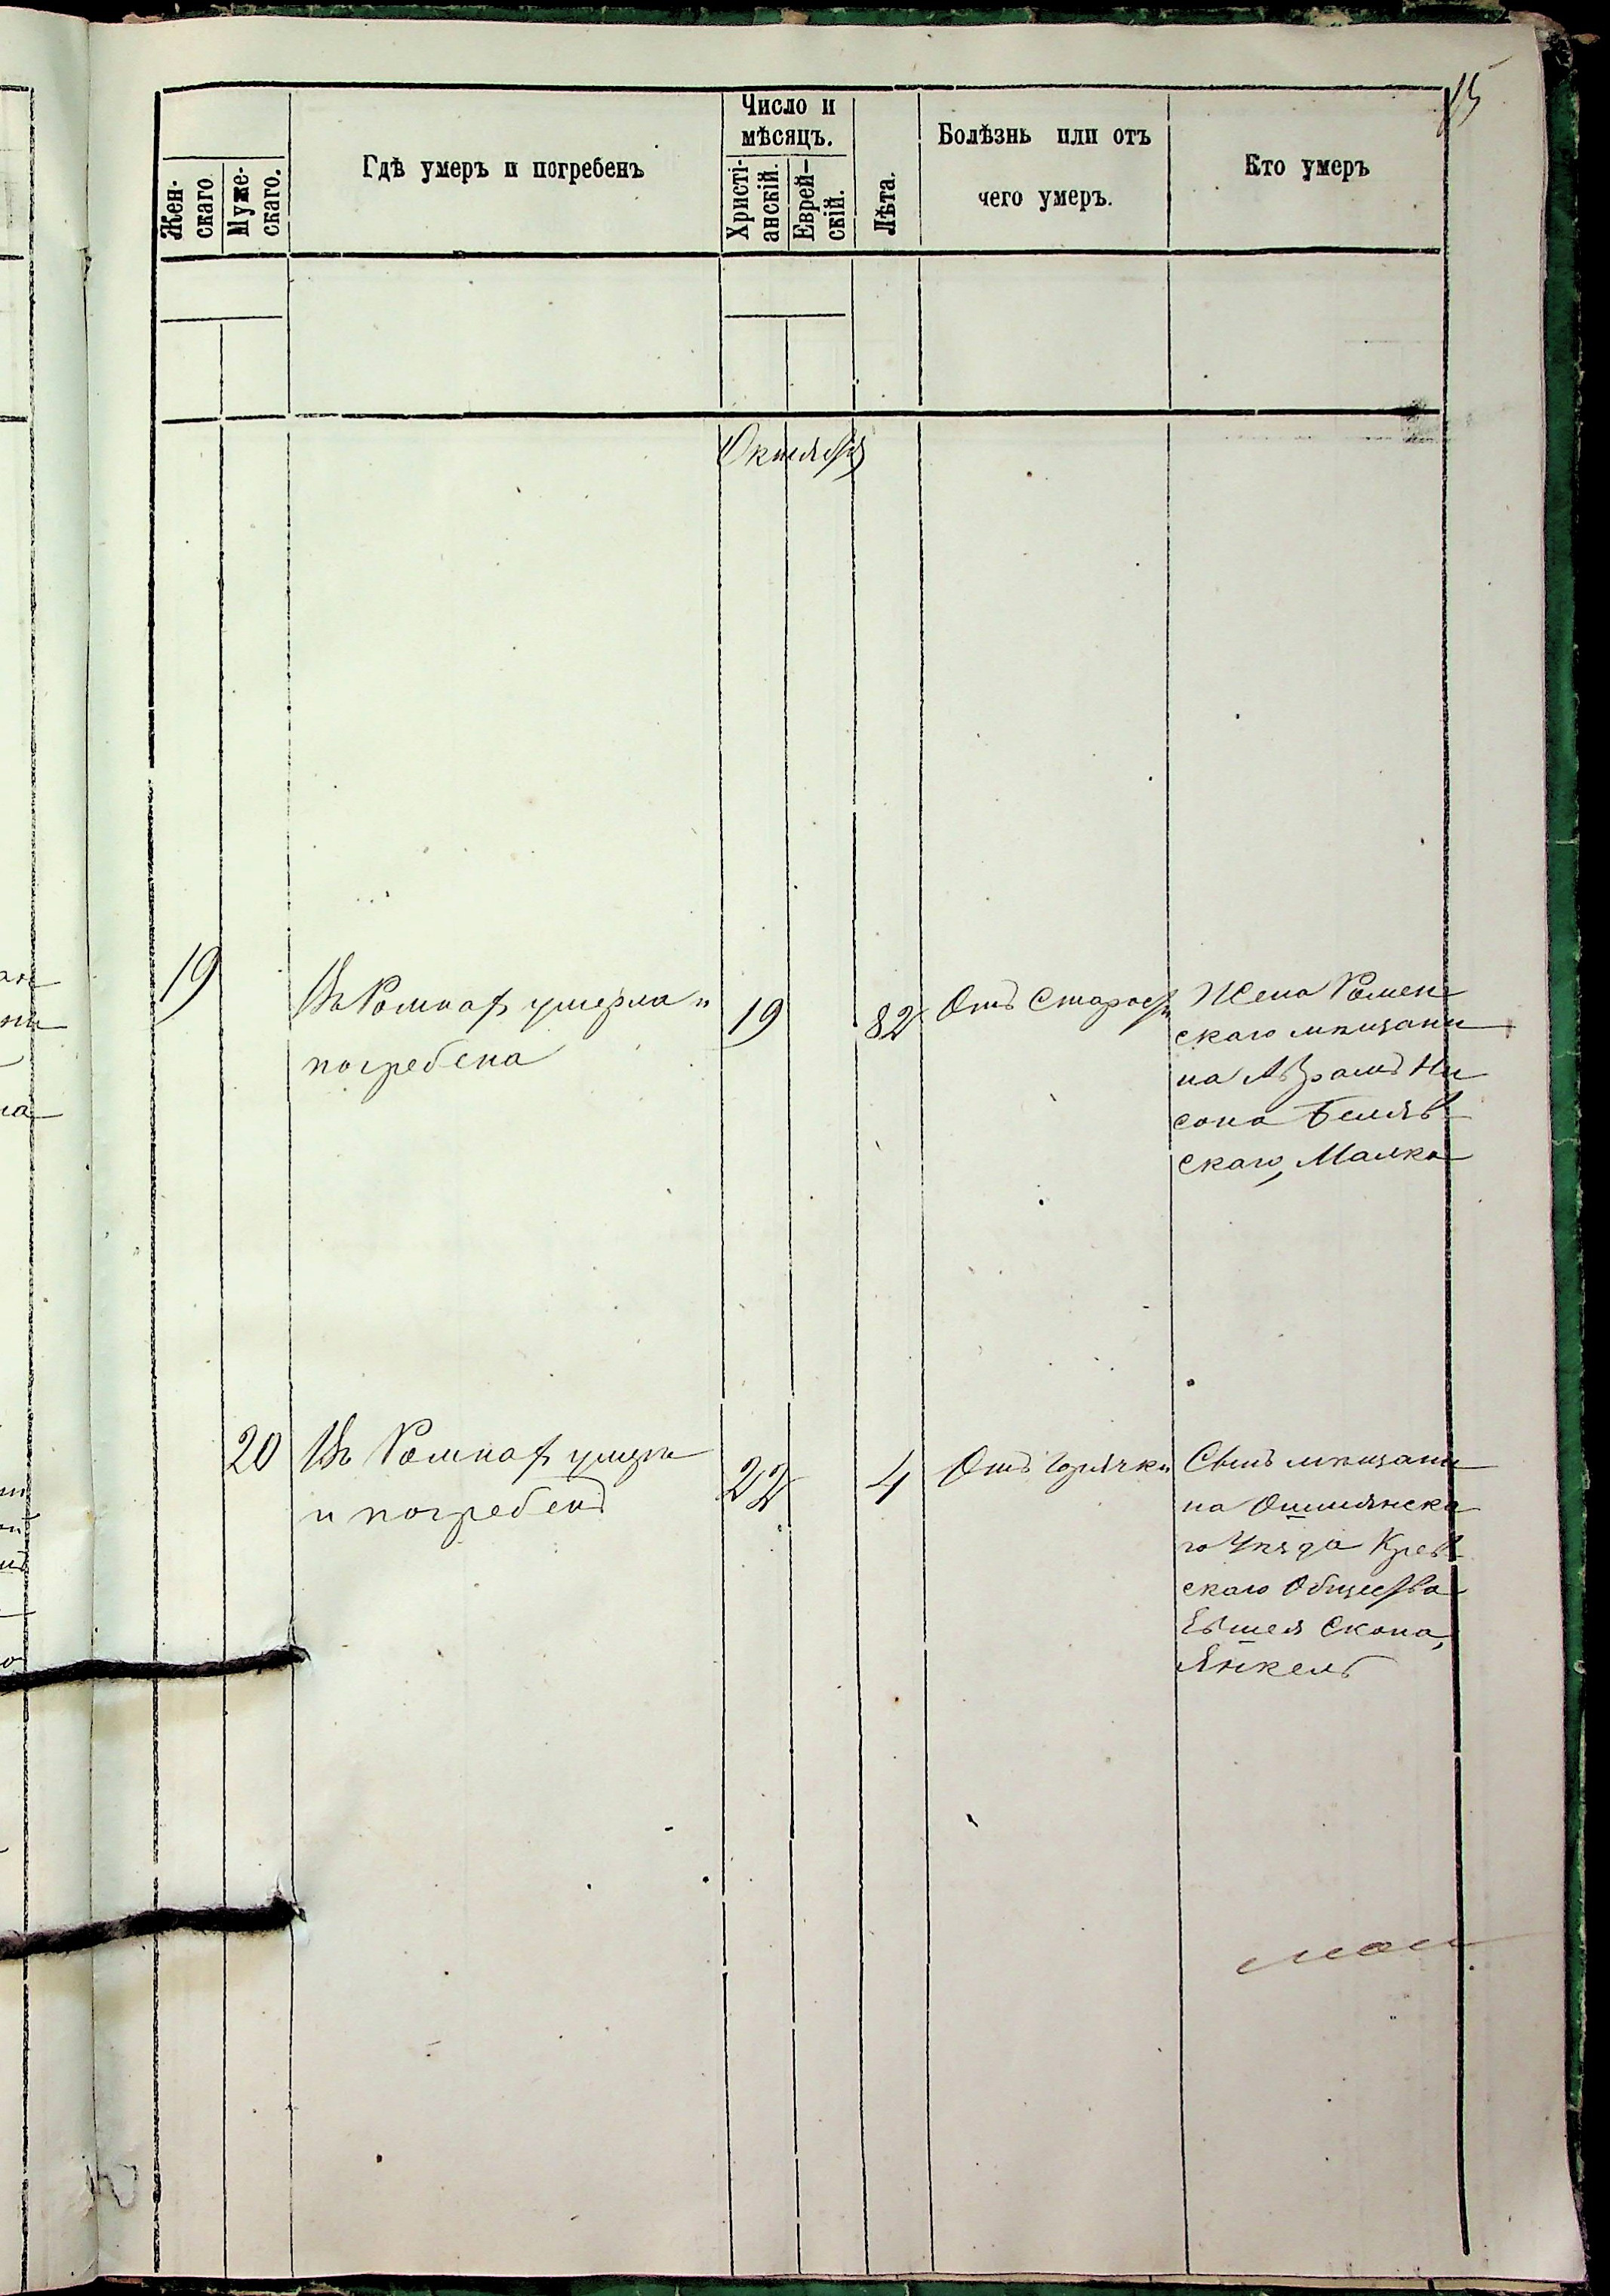 15
Жен-
скаго.
Муже-
скаго.
Гдѣ умеръ и погребенъ
Число и
мѣсяцъ.
Христі-
анскій.
Еврей-
скій.
Лѣта.
Болѣзнь или отъ
чего умеръ.
Кто умеръ
Октября
19
Въ Ромнах умерла и
погребена
19
82
Отъ Старости
Жена Ромен
скаго мѣщани
на Абрамъ Ни
сона Беляв
скаго, Малка
20
Въ Ромнах умеръ
и погребенъ
22
4
Отъ горячки
Сынъ мѣщани
на Ошмянска
го Уѣзда Крев
скаго Общества
Евшея Скопа,
Янкель